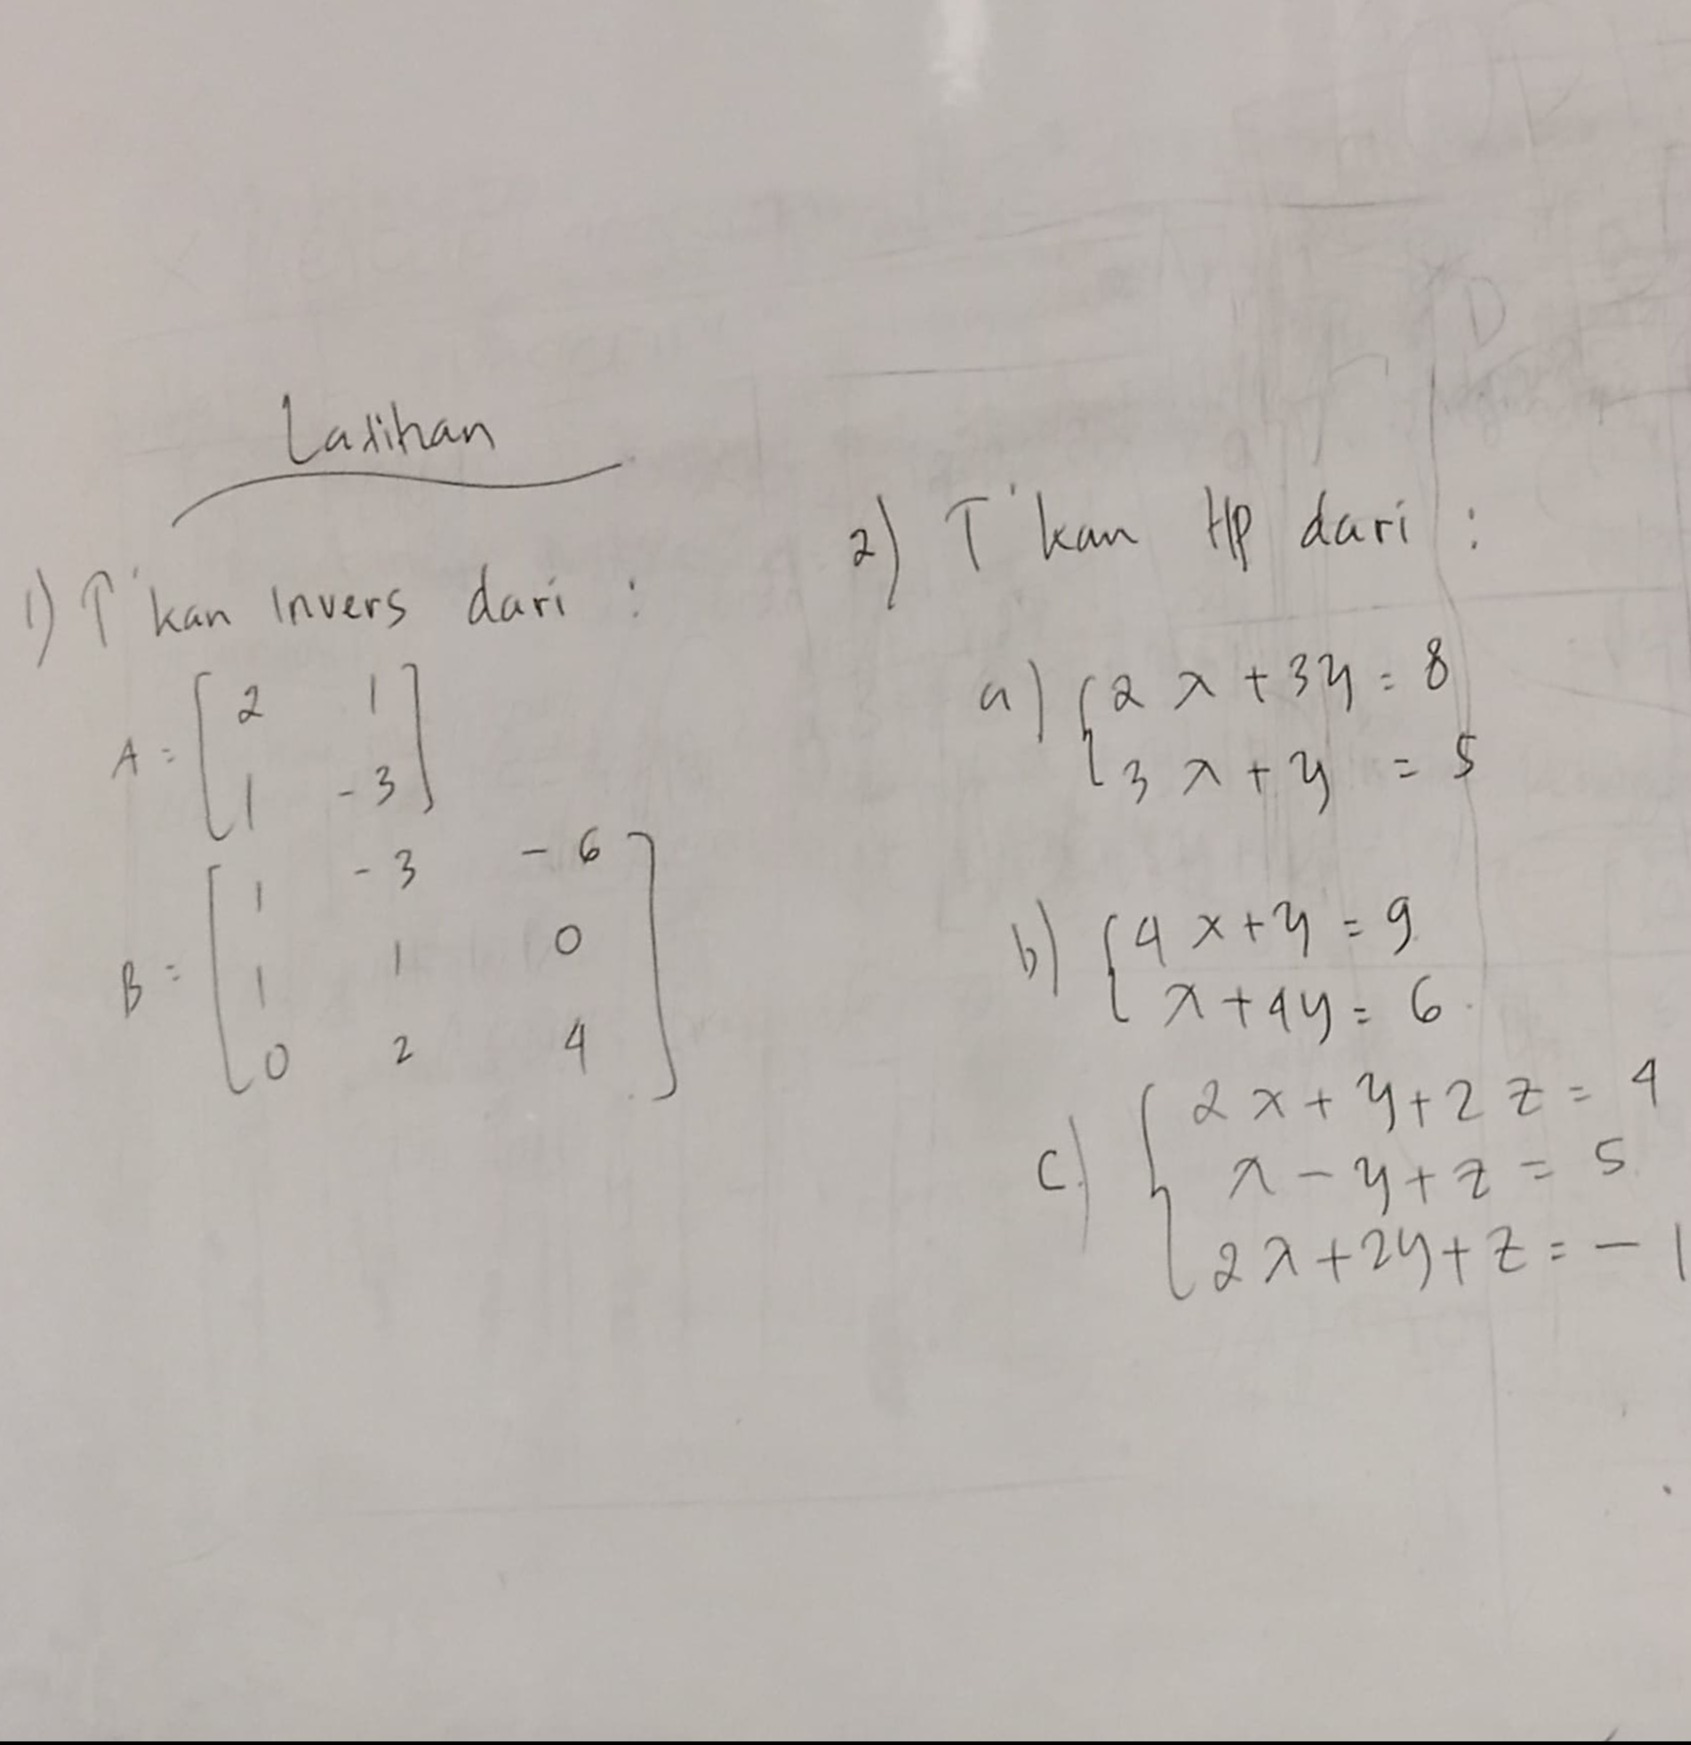 Latihan
1) T'kan Invers dari :
A = [ 2 1
1 -3 ]
B = [ 1 -3 -6
1 1 0
0 2 4 ]
2) T'kan HP dari :
a) { 2x + 3y = 8
3x + y = 5
b) { 4x + y = 9
x + 4y = 6
c.) { 2x + y + 2z = 4
x - y + z = 5
2x + 2y + z = -1